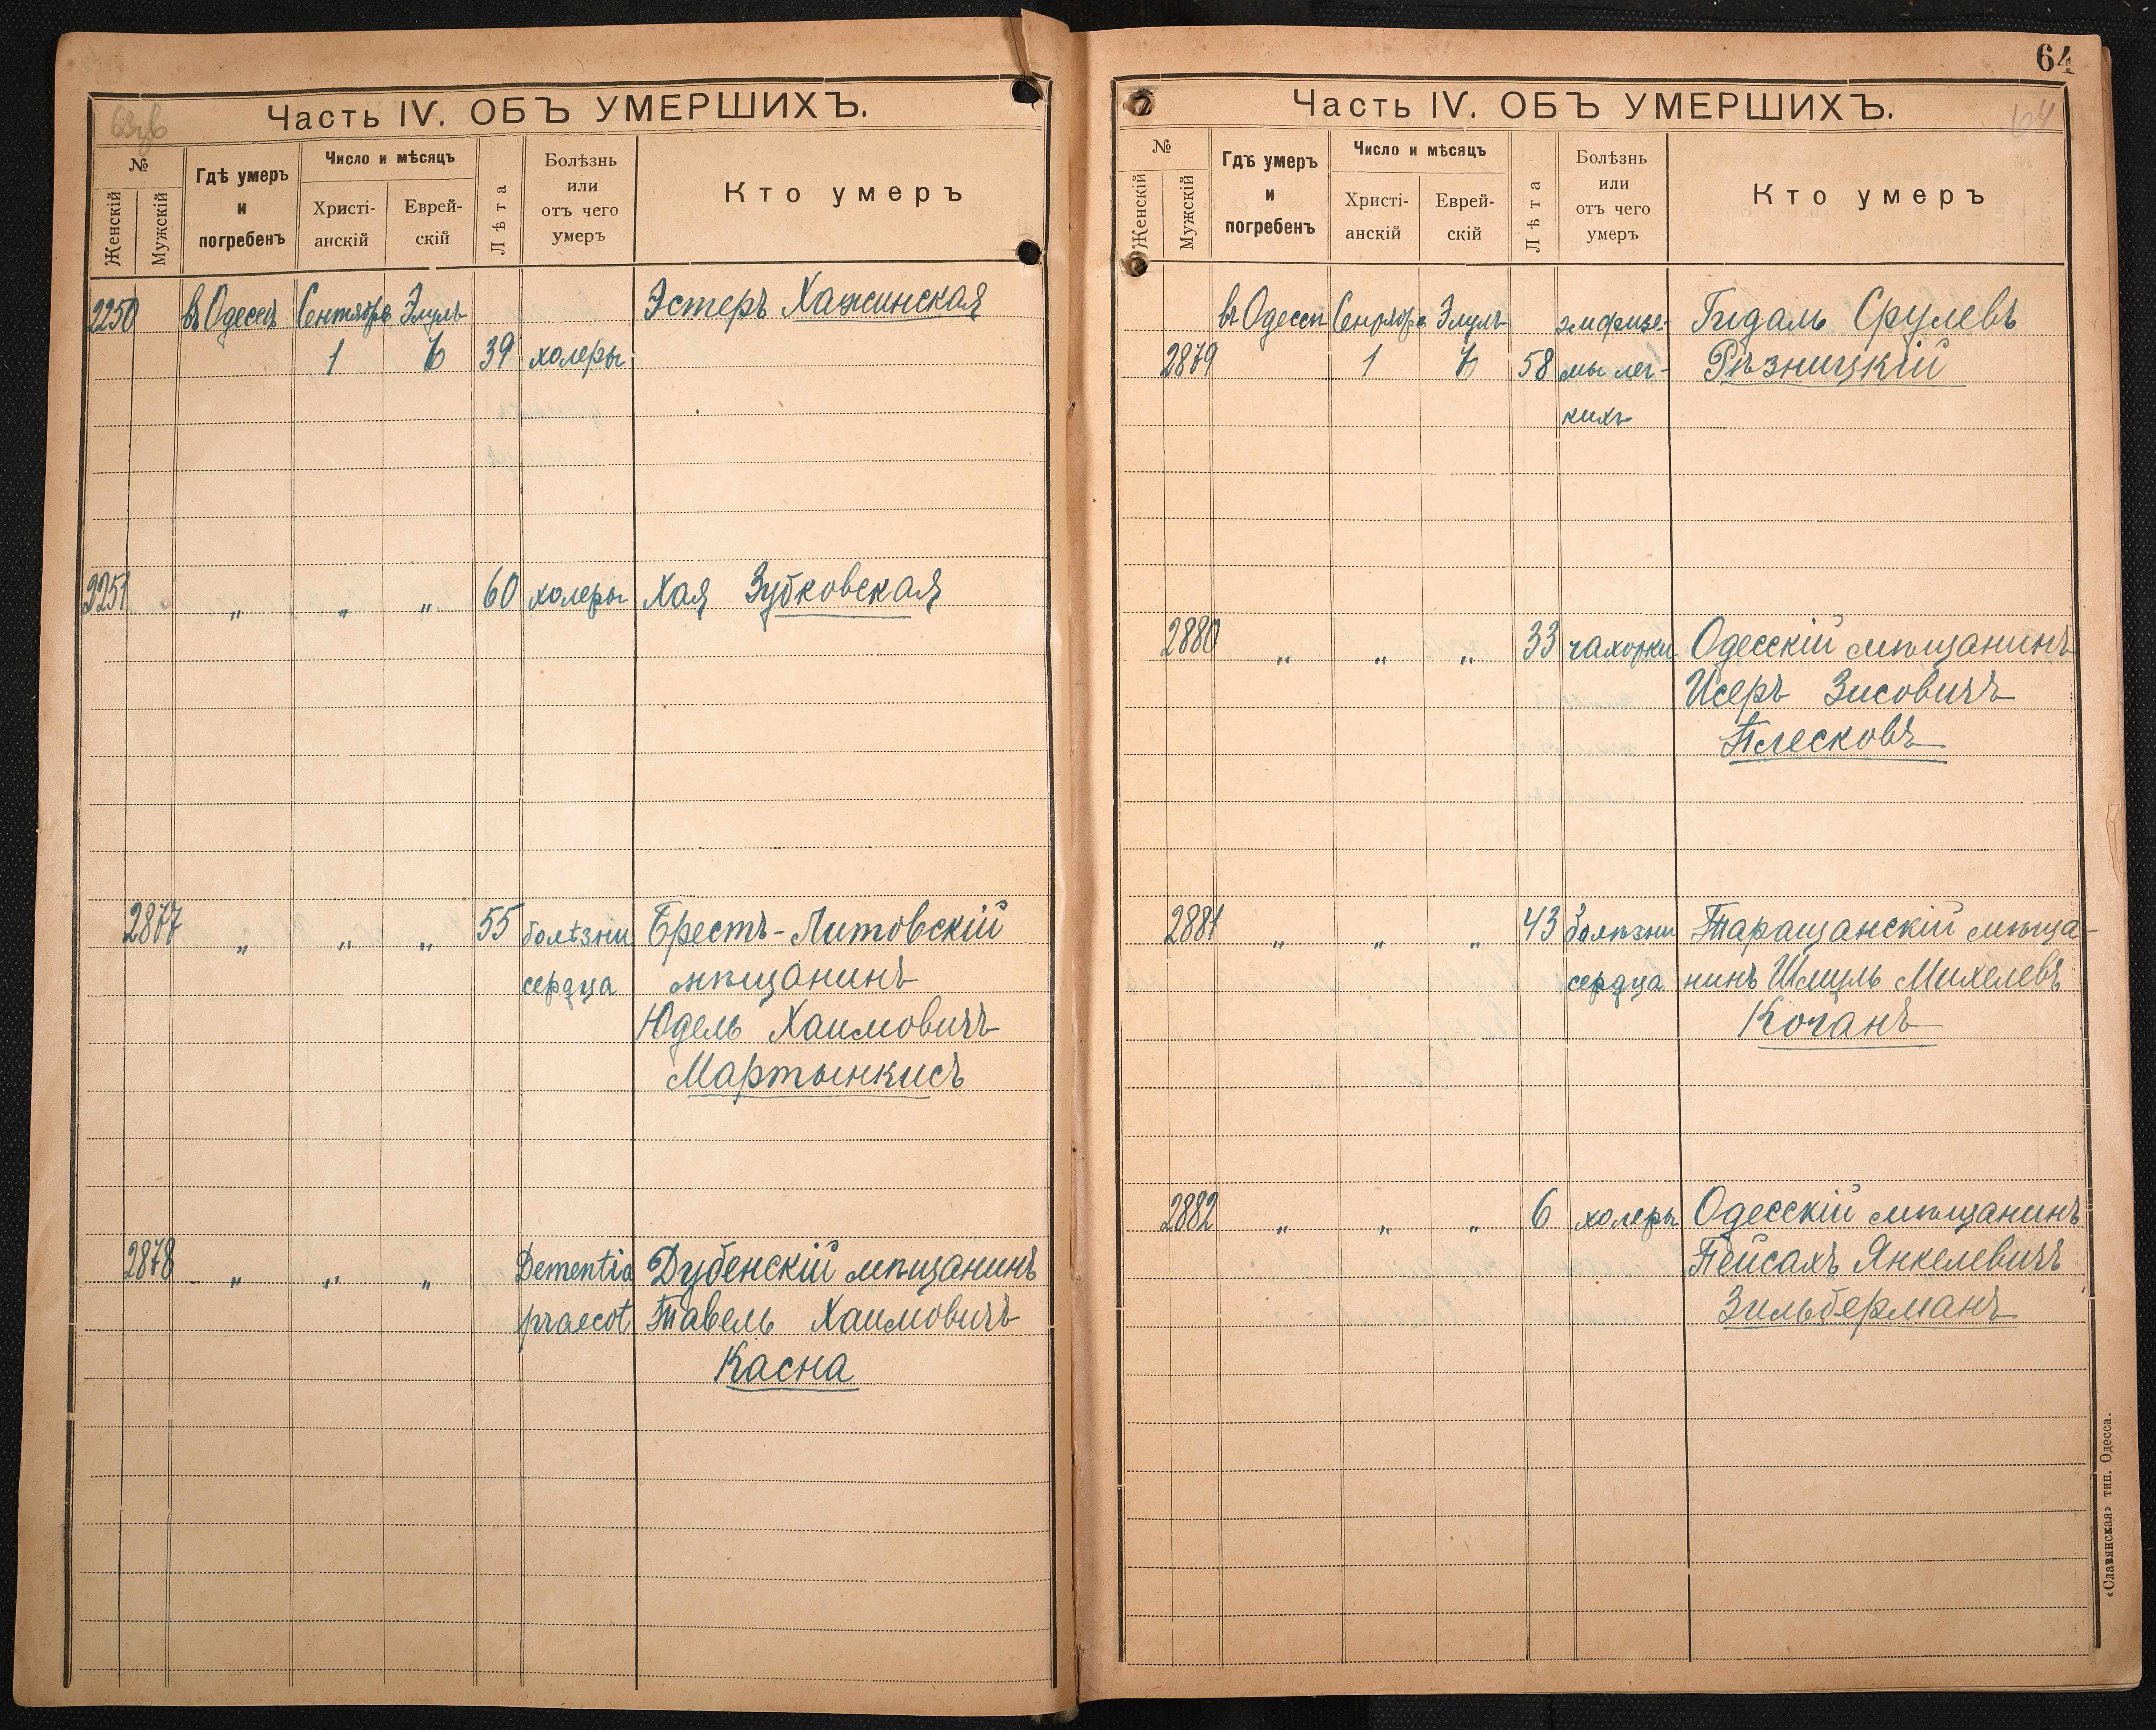 Часть IV. ОБЪ УМЕРШИХЪ.
№
Женскій
Мужскій
Гдѣ умеръ
и
погребенъ
Число и мѣсяцъ
Христі-
анскій
Еврей-
скій
Лѣта
Болѣзнь
или
отъ чего
умеръ
Кто умеръ
2250 въ Одессѣ Сентябрь Элуль Эстеръ Хажинская
1 6 39 холеры
2251 „ „ „ 60 холеры Хая Зубковская
2877 „ „ „ 55 болѣзни Брестъ-Литовскій
сердца мѣщанинъ
Юдель Хаимовичъ
Мартынкисъ
2878 „ „ „ Dementia Дубенскій мѣщанинъ
praecot Тавель Хаимовичъ
Касна
64
Часть IV. ОБЪ УМЕРШИХЪ.
64
№
Женскій
Мужскій
Гдѣ умеръ
и
погребенъ
Число и мѣсяцъ
Христі-
анскій
Еврей-
скій
Лѣта
Болѣзнь
или
отъ чего
умеръ
Кто умеръ
въ Одессѣ Сентябрь Элуль эмфизе- Гидаль Срулевъ
2879 1 6 58 мы лег- Рѣзницкій
кихъ
2880 „ „ „ 33 чахотки Одесскій мѣщанинъ
Исеръ Зисовичъ
Плесковъ
2881 „ „ „ 43 болѣзни Таращанскій мѣща-
сердца нинъ Шмуль Михелевъ
Коганъ
2882 „ „ „ 6 холеры Одесскій мѣщанинъ
Пейсахъ Янкелевичъ
Зильберманъ
«Славянская» тип. Одесса.